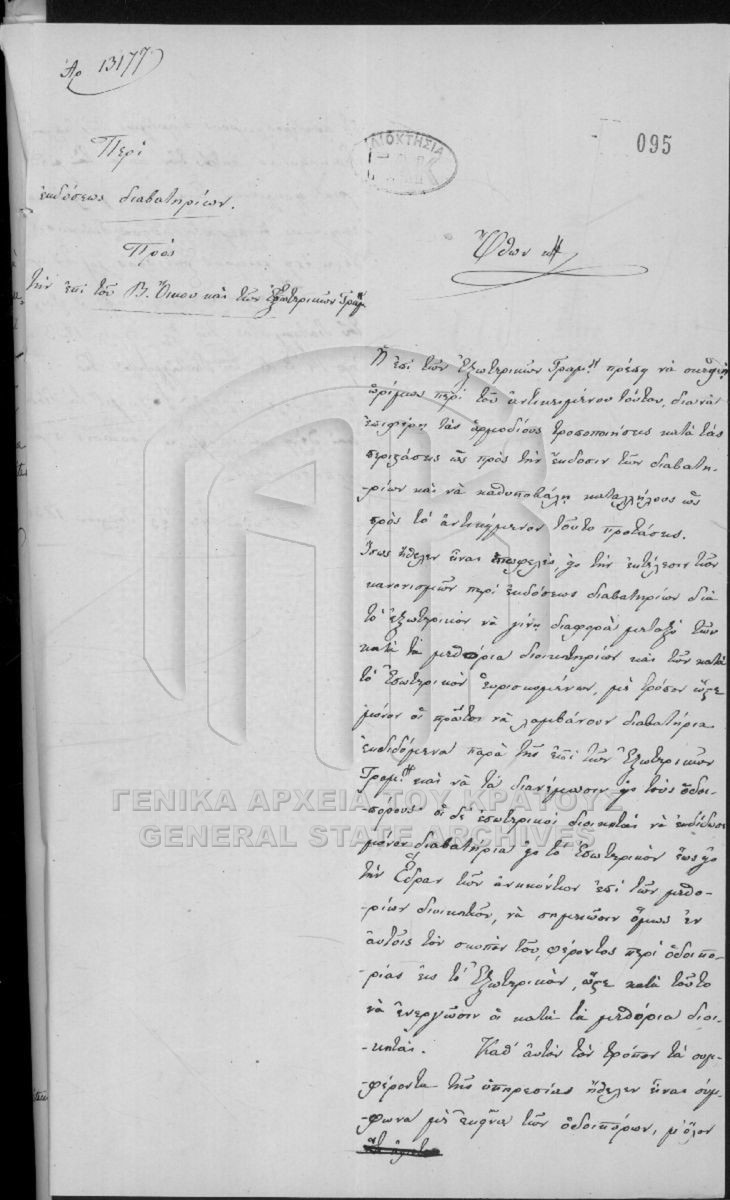 Αρ 13177
095
ΙΔΙΟΚΤΗΣΙΑ
Περὶ
ἐκδόσεως διαβατηρίων.
Πρὸς
τὴν ἐπὶ τοῦ Β. Οἴκου καὶ τῶν Ἐξωτερικῶν Γραμ
Ὄθων κτλ
Ἡ ἐπὶ τῶν Ἐξωτερικῶν Γραμ. πρέπει νὰ σκεφθῇ
ὡρίμως περὶ τοῦ ἀντικειμένου τούτου, διὰ νὰ
ἐπιφέρῃ τὰς ἁρμοδίους τροποποιήσεις κατὰ τὰς
περιστάσεις ὡς πρὸς τὴν ἔκδοσιν τῶν διαβατη-
-ρίων καὶ νὰ καθυποβάλῃ καταλλήλους ὡς
πρὸς τὸ ἀντικείμενον τοῦτο προτάσεις.
Ἴσως ἤθελεν εἶναι ἐπωφελὲς, εἰς τὴν ἐκτέλεσιν τῶν
κανονισμῶν περὶ ἐκδόσεως διαβατηρίων διὰ
τὸ ἐξωτερικὸν νὰ γίνῃ διαφορὰ μεταξὺ τῶν
κατὰ τὰ μεθόρια διοικητηρίων καὶ τῶν κατὰ
τὸ Ἐσωτερικὸν εὑρισκομένων, μὲ τρόπον ὥστε
μόνον οἱ πρῶτοι νὰ λαμβάνουν διαβατήρια
ἐκδιδόμενα παρὰ τῆς ἐπὶ τῶν Ἐξωτερικῶν
Γραμ. καὶ νὰ τὰ διανέμωσιν εἰς τοὺς ὁδοι-
-πόρους· οἱ δὲ ἐσωτερικοὶ διοικηταὶ νὰ ἐκδίδωσι
μόνον διαβατήρια εἰς τὸ Ἐσωτερικὸν ἕως εἰς
τὴν Ἕδραν τῶν ἀνηκόντων ἐπὶ τῶν μεθο-
-ρίων διοικητῶν, νὰ σημειῶσιν ὅμως ἐν
αὐτοῖς τὸν σκοπὸν τοῦ φέροντος περὶ ὁδοιπο-
-ρίας εἰς τὸ Ἐξωτερικὸν, ὥστε κατὰ τοῦτο
νὰ ἐνεργῶσιν οἱ κατὰ τὰ μεθόρια διοι-
-κηταί. Καθ' αὐτὸν τὸν τρόπον τὰ συμ-
-φέροντα τῆς ὑπηρεσίας ἤθελεν εἶναι σύμ-
-φωνα μὲ ἐκεῖνα τῶν ὁδοιπόρων, μ' ὅλον
ΓΕΝΙΚΑ ΑΡΧΕΙΑ ΤΟΥ ΚΡΑΤΟΥΣ
GENERAL STATE ARCHIVES